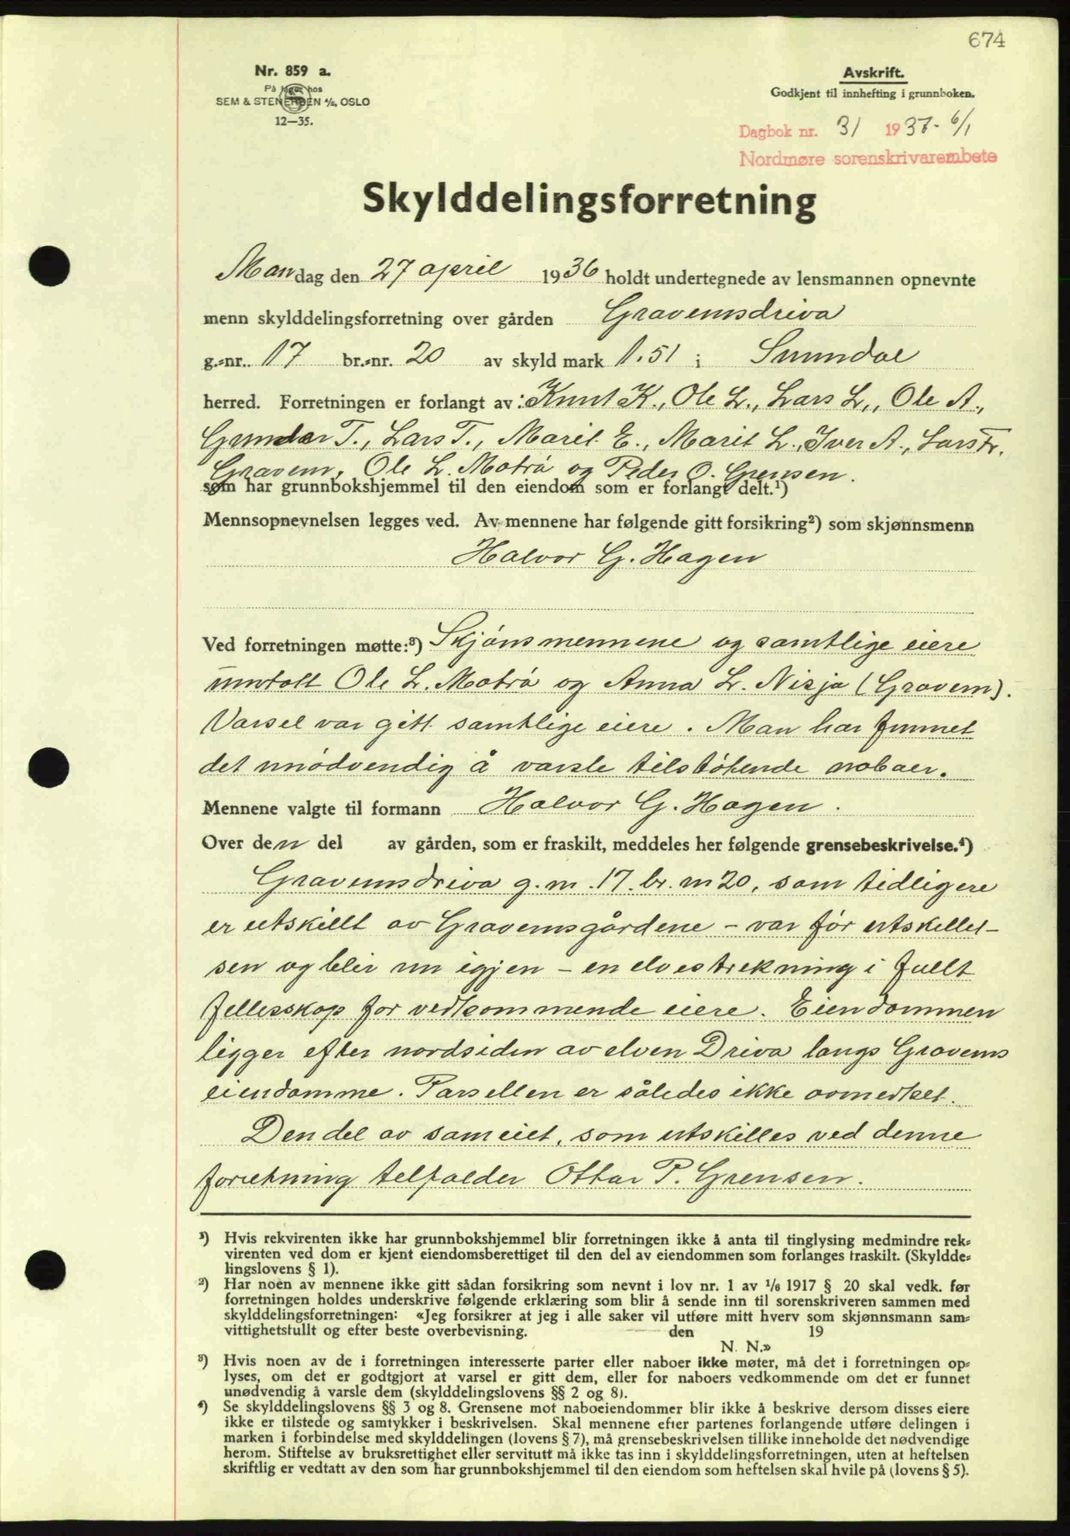 674
Nr. 859 a.
På lager hos
SEM & STENERSEN A/S, OSLO
12—35.
Avskrift.
Godkjent til innhefting i grunnboken.
Dagbok nr. 31 1937- 6/1
Nordmøre sorenskrivarembete
Skylddelingsforretning
Mandag den 27 april 1936 holdt undertegnede av lensmannen opnevnte
menn skylddelingsforretning over gården Gravemsdriva
g.-nr. 17 br.-nr. 20 av skyld mark 1.51 i Sunndal
herred. Forretningen er forlangt av: Knut K., Ole L., Lars L., Ole A.,
Gunder T., Lars T., Marit E., Marit L., Iver A., Lars Tr.
Gravem, Ole L. Motrø og Peder O. Grensen.
som har grunnbokshjemmel til den eiendom som er forlangt delt.¹)
Mennsopnevnelsen legges ved. Av mennene har følgende gitt forsikring²) som skjønnsmenn
Halvor G. Hagen
Ved forretningen møtte:³) Skjønsmennene og samtlige eiere
unntatt Ole L. Motrø og Anna L. Nisja (Gravem).
Varsel var gitt samtlige eiere. Man har funnet
det unødvendig å varsle tilstøtende naboer.
Mennene valgte til formann Halvor G. Hagen.
Over den del av gården, som er fraskilt, meddeles her følgende grensebeskrivelse.⁴)
Gravemsdriva g.nr. 17. br.nr 20, som tidligere
er utskillt av Gravemsgårdene - var før utskillel-
sen og blir nu igjen - en elvestrekning i fullt
fellesskap for vedkommende eiere. Eiendommen
ligger efter nordsiden av elven Driva langs Gravems
eiendomme. Parsellen er således ikke avmerket.
Den del av sameiet, som utskilles ved denne
forretning tilfalder Ottar P. Grensen.
¹) Hvis rekvirenten ikke har grunnbokshjemmel blir forretningen ikke å anta til tinglysing medmindre rek-
virenten ved dom er kjent eiendomsberettiget til den del av eiendommen som forlanges fraskilt. (Skyldde-
lingslovens § 1).
²) Har noen av mennene ikke gitt sådan forsikring som nevnt i lov nr. 1 av 1/6 1917 § 20 skal vedk. før
forretningen holdes underskrive følgende erklæring som blir å sende inn til sorenskriveren sammen med
skylddelingsforretningen: «Jeg forsikrer at jeg i alle saker vil utføre mitt hverv som skjønnsmann sam-
vittighetsfullt og efter beste overbevisning. den 19
N. N.»
³) Hvis noen av de i forretningen interesserte parter eller naboer ikke møter, må det i forretningen op-
lyses, om det er godtgjort at varsel er gitt dem, eller for naboers vedkommende om det er funnet
unødvendig å varsle dem (skylddelingslovens §§ 2 og 8).
⁴) Se skylddelingslovens §§ 3 og 8. Grensene mot naboeiendommer blir ikke å beskrive dersom disses eiere
ikke er tilstede og samtykker i beskrivelsen. Skal mennene efter partenes forlangende utføre delingen i
marken i forbindelse med skylddelingen (lovens § 7), må grensebeskrivelsen tillike inneholde det nødvendige
herom. Stiftelse av bruksrettighet eller servitutt må ikke tas inn i skylddelingsforretningen, uten at heftelsen
skriftlig er vedtatt av den som har grunnbokshjemmel til den eiendom som heftelsen skal hvile på (lovens § 5).